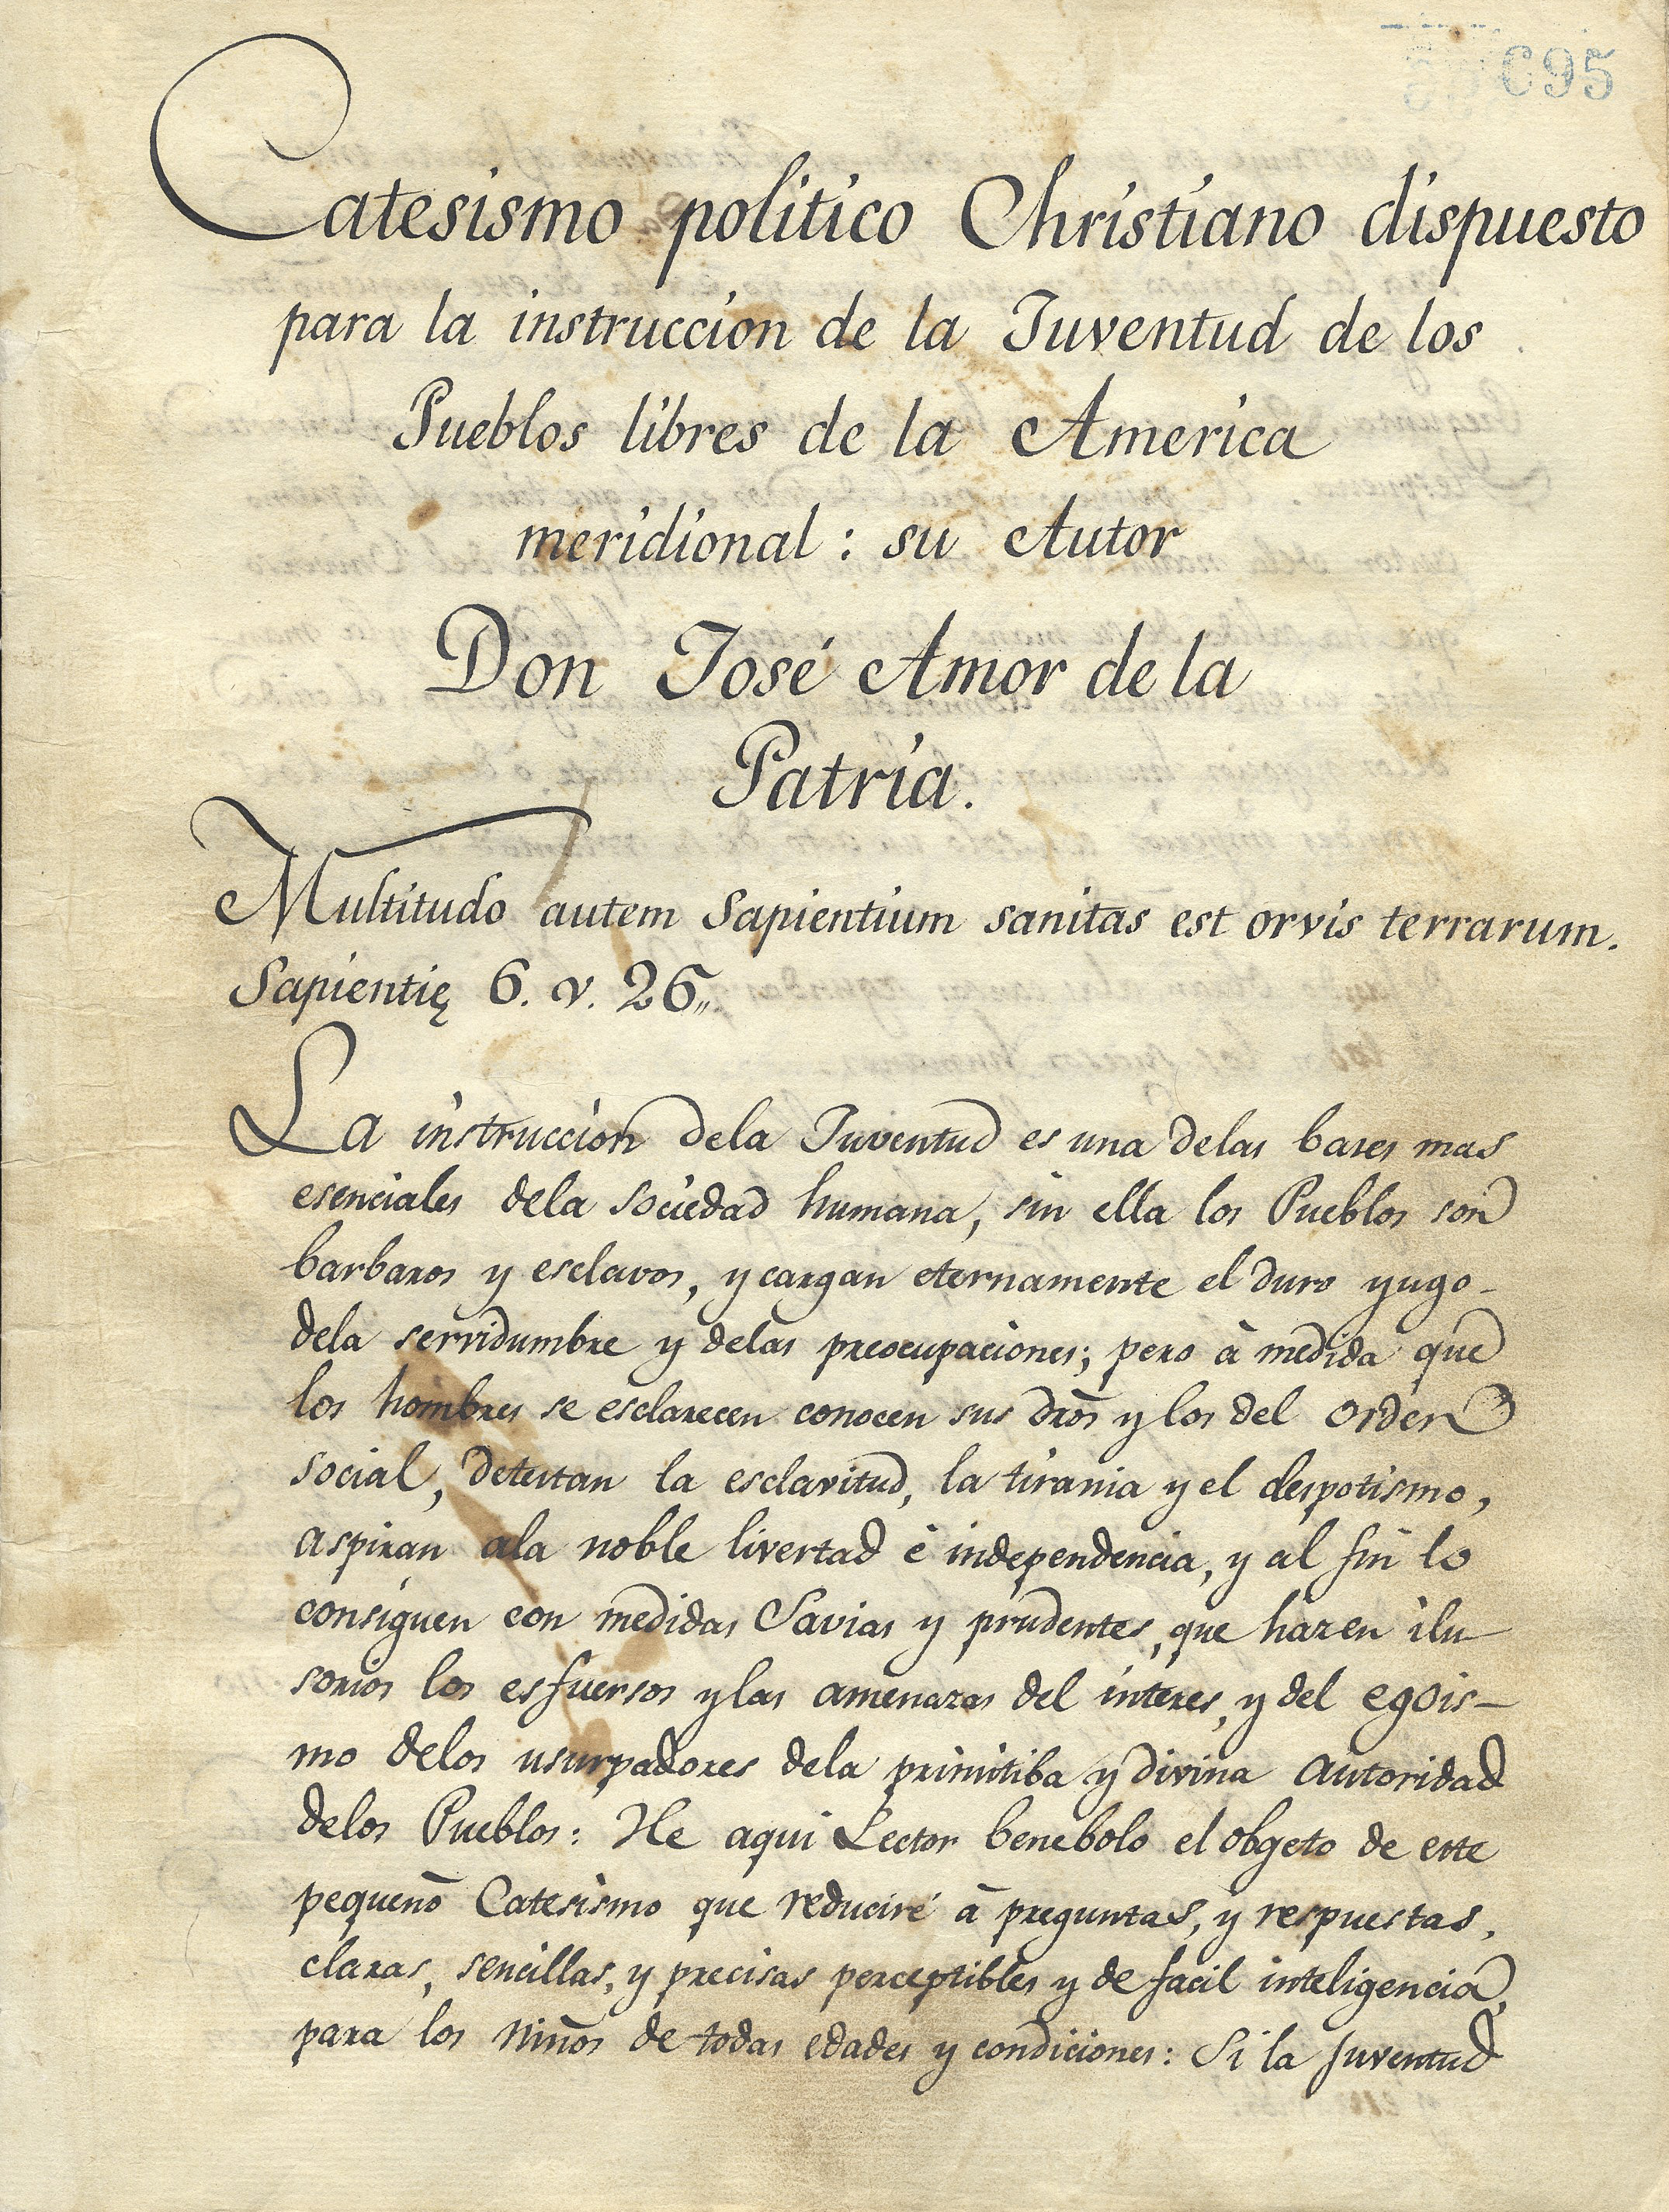 695
Catesismo politico Christiano dispuesto
para la instruccion de la Juventud de los
Pueblos libres de la America
meridional : su Autor
Don José Amor de la
Patria.
Multitudo autem Sapientium sanitas est orvis terrarum.
Sapientię 6. v. 26,,
La instruccion dela Juventud es una delas bases mas
esenciales dela sociedad humana, sin ella los Pueblos son
barbaros y esclavos, y cargan eternamente el duro yugo-
dela servidumbre y delas preocupaciones; pero à medida que
los hombres se esclarecen conocen sus dr̃os y los del orden
social, detestan la esclavitud, la tirania y el despotismo,
aspiran ala noble livertad è independencia, y al fin lo
consiguen con medidas Savias y prudentes, que hazen ilu-
sorios los esfuersos y las amenazas del interes, y del egois-
mo delos usurpadores dela primitiba y divina autoridad
delos Pueblos: He aqui Lector benebolo el obgeto de este
pequeño Catesismo que reduciré à preguntas, y respuestas,
claras, sencillas, y precisas perceptibles y de facil inteligencia,
para los niños de todas edades y condiciones: Si la Juventud